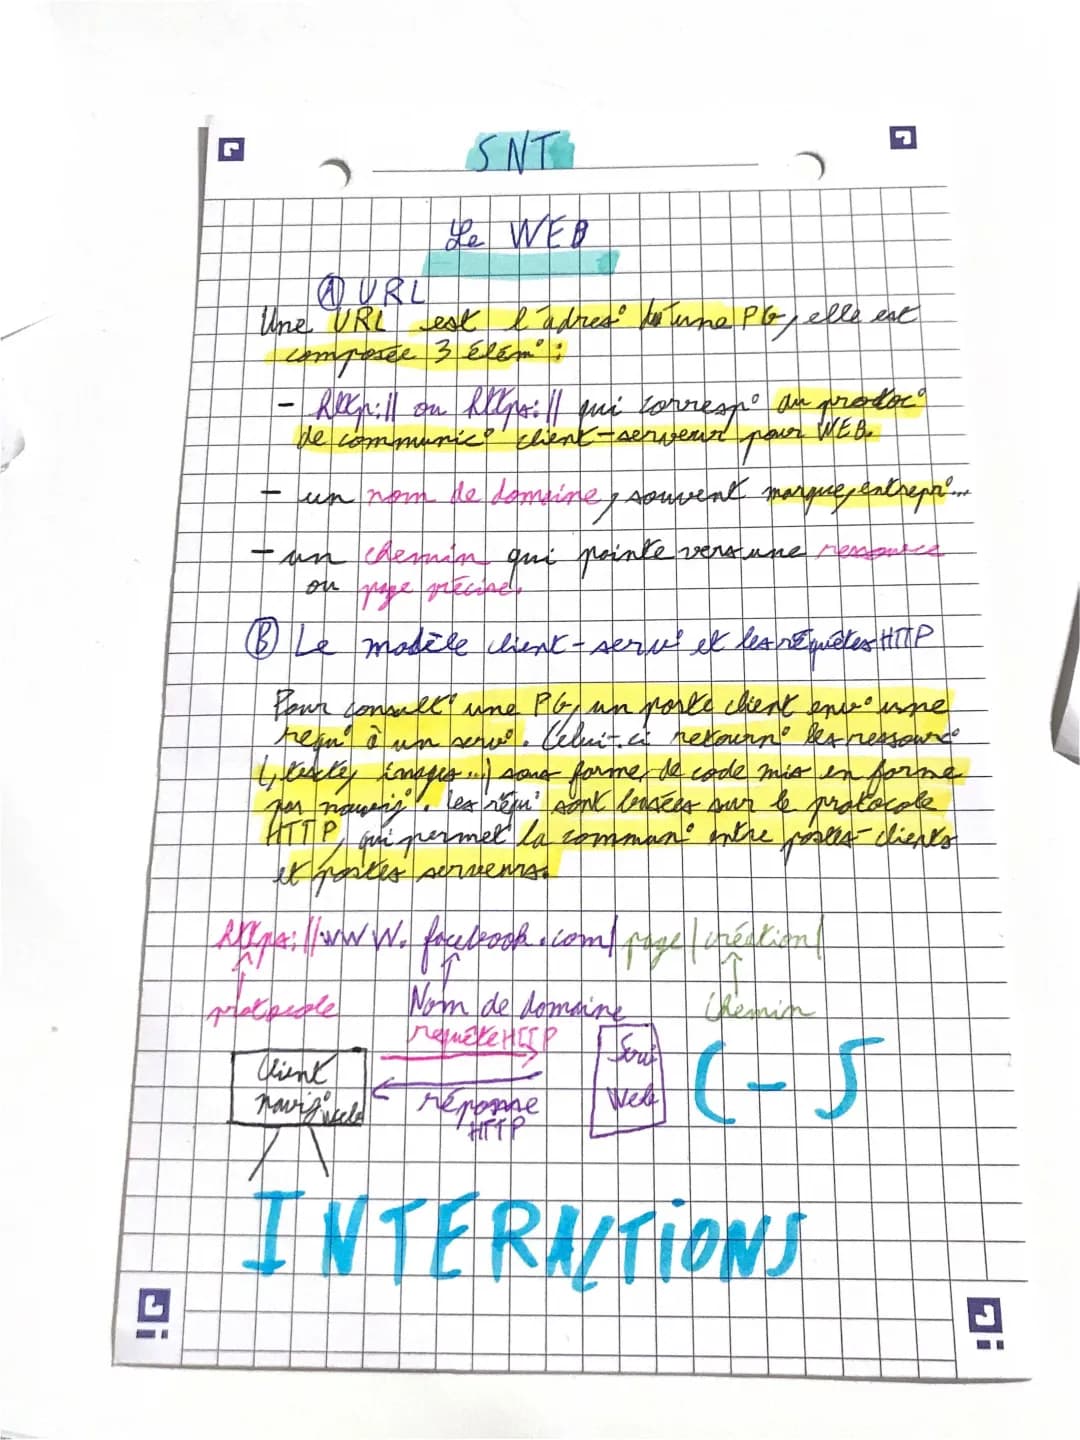 SNT
Le WEB
Ⓐ URL
Une URL est l'adres° d'une PG, elle est
composée 3 élém° :
- http:// ou https:// qui corresp° au protoc°
de communic° client-serveur pour WEB.
- un nom de domaine, souvent marque, entrepr°...
- un chemin qui pointe vers une ressource
ou page précise.
Ⓑ Le modèle client-serv° et les requêtes HTTP
Pour consult° une PG, un poste client env° une
requ° à un serv°. Celui-ci retourn° les ressourc°
(texte, images...) sous forme de code mis en forme
par navig°. les requ° sont basées sur le protocole
HTTP, qui permet la commun° entre postes-clients
et postes serveurs.
https://www.facebook.com/page/création/
protocole Nom de domaine Chemin
requête HTTP
Client navig° web
réponse HTTP
Serv° Web
C-S
INTERACTIONS